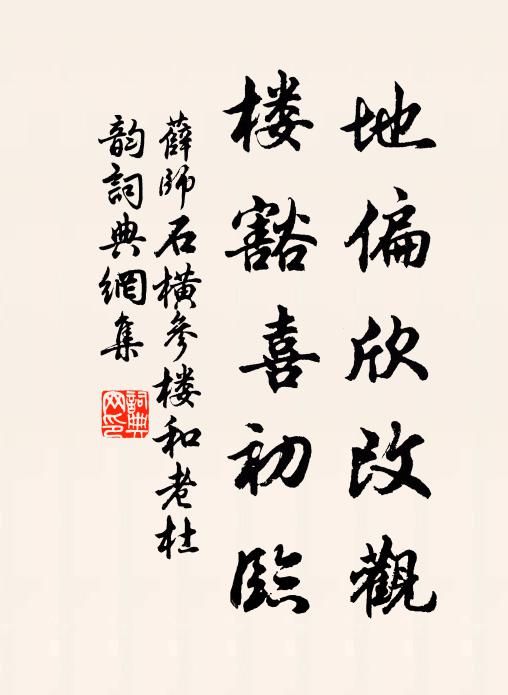 地偏欣改觀
楼豁喜初臨
薛師石橫參楼和老杜
韵詞典網集
詞典
网印